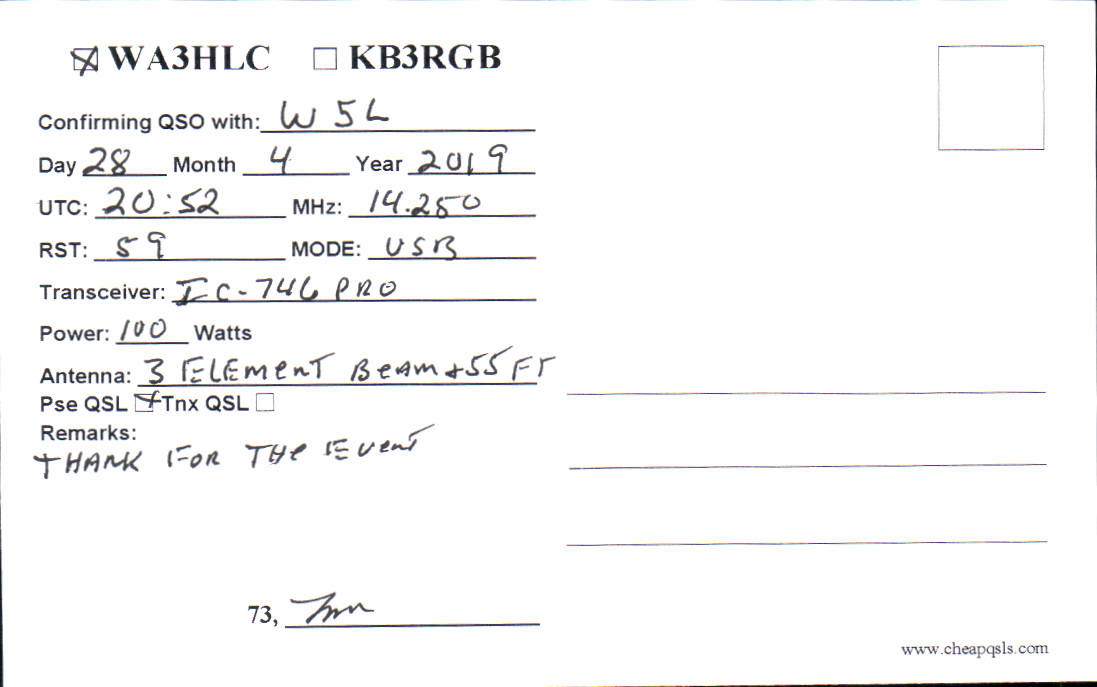 WA3HLC KB3RGB
Confirming QSO with: W5L
Day 28 Month 4 Year 2019
UTC: 20:52 MHz: 14.250
RST: 59 MODE: USB
Transceiver: IC-746 PRO
Power: 100 Watts
Antenna: 3 ELEmenT BeAm + 55 FT
Pse QSL Tnx QSL
Remarks:
THANK FOR THe EvenT
73,
www.cheapqsls.com